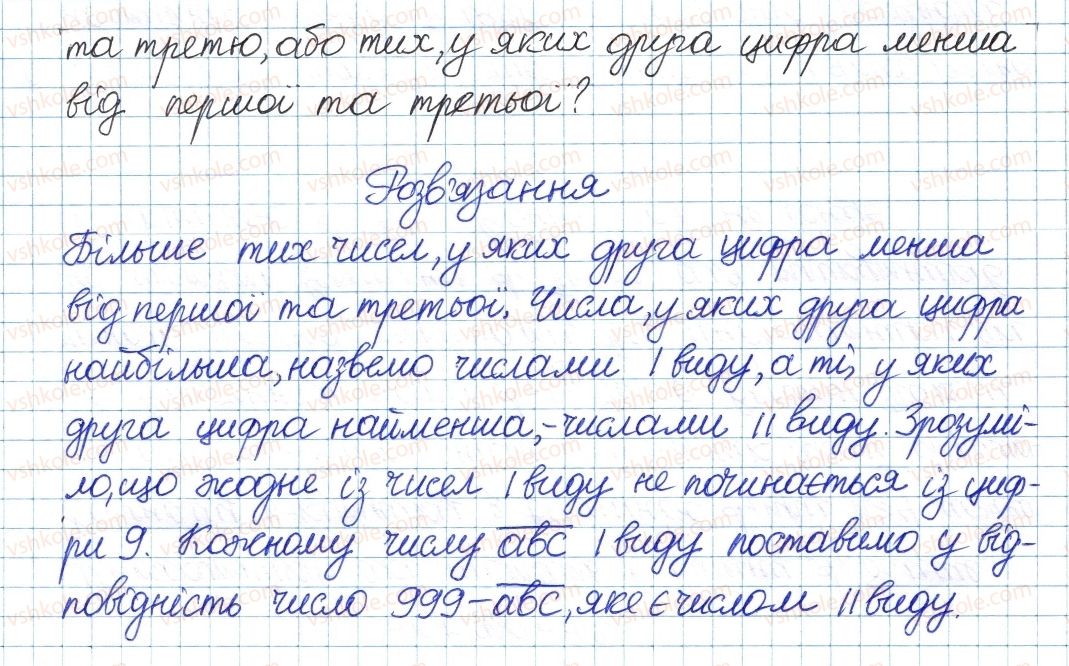 та третю, або тих, у яких друга цифра менша
від першої та третьої?
Розв'язання
Більше тих чисел, у яких друга цифра менша
від першої та третьої. Числа, у яких друга цифра
найбільша, назвемо числами I виду, а ті, у яких
друга цифра найменша, – числами II виду. Зрозумі-
ло, що жодне із чисел I виду не починається із циф-
ри 9. Кожному числу abc I виду поставимо у від-
повідність число 999 – abc, яке є числом II виду.